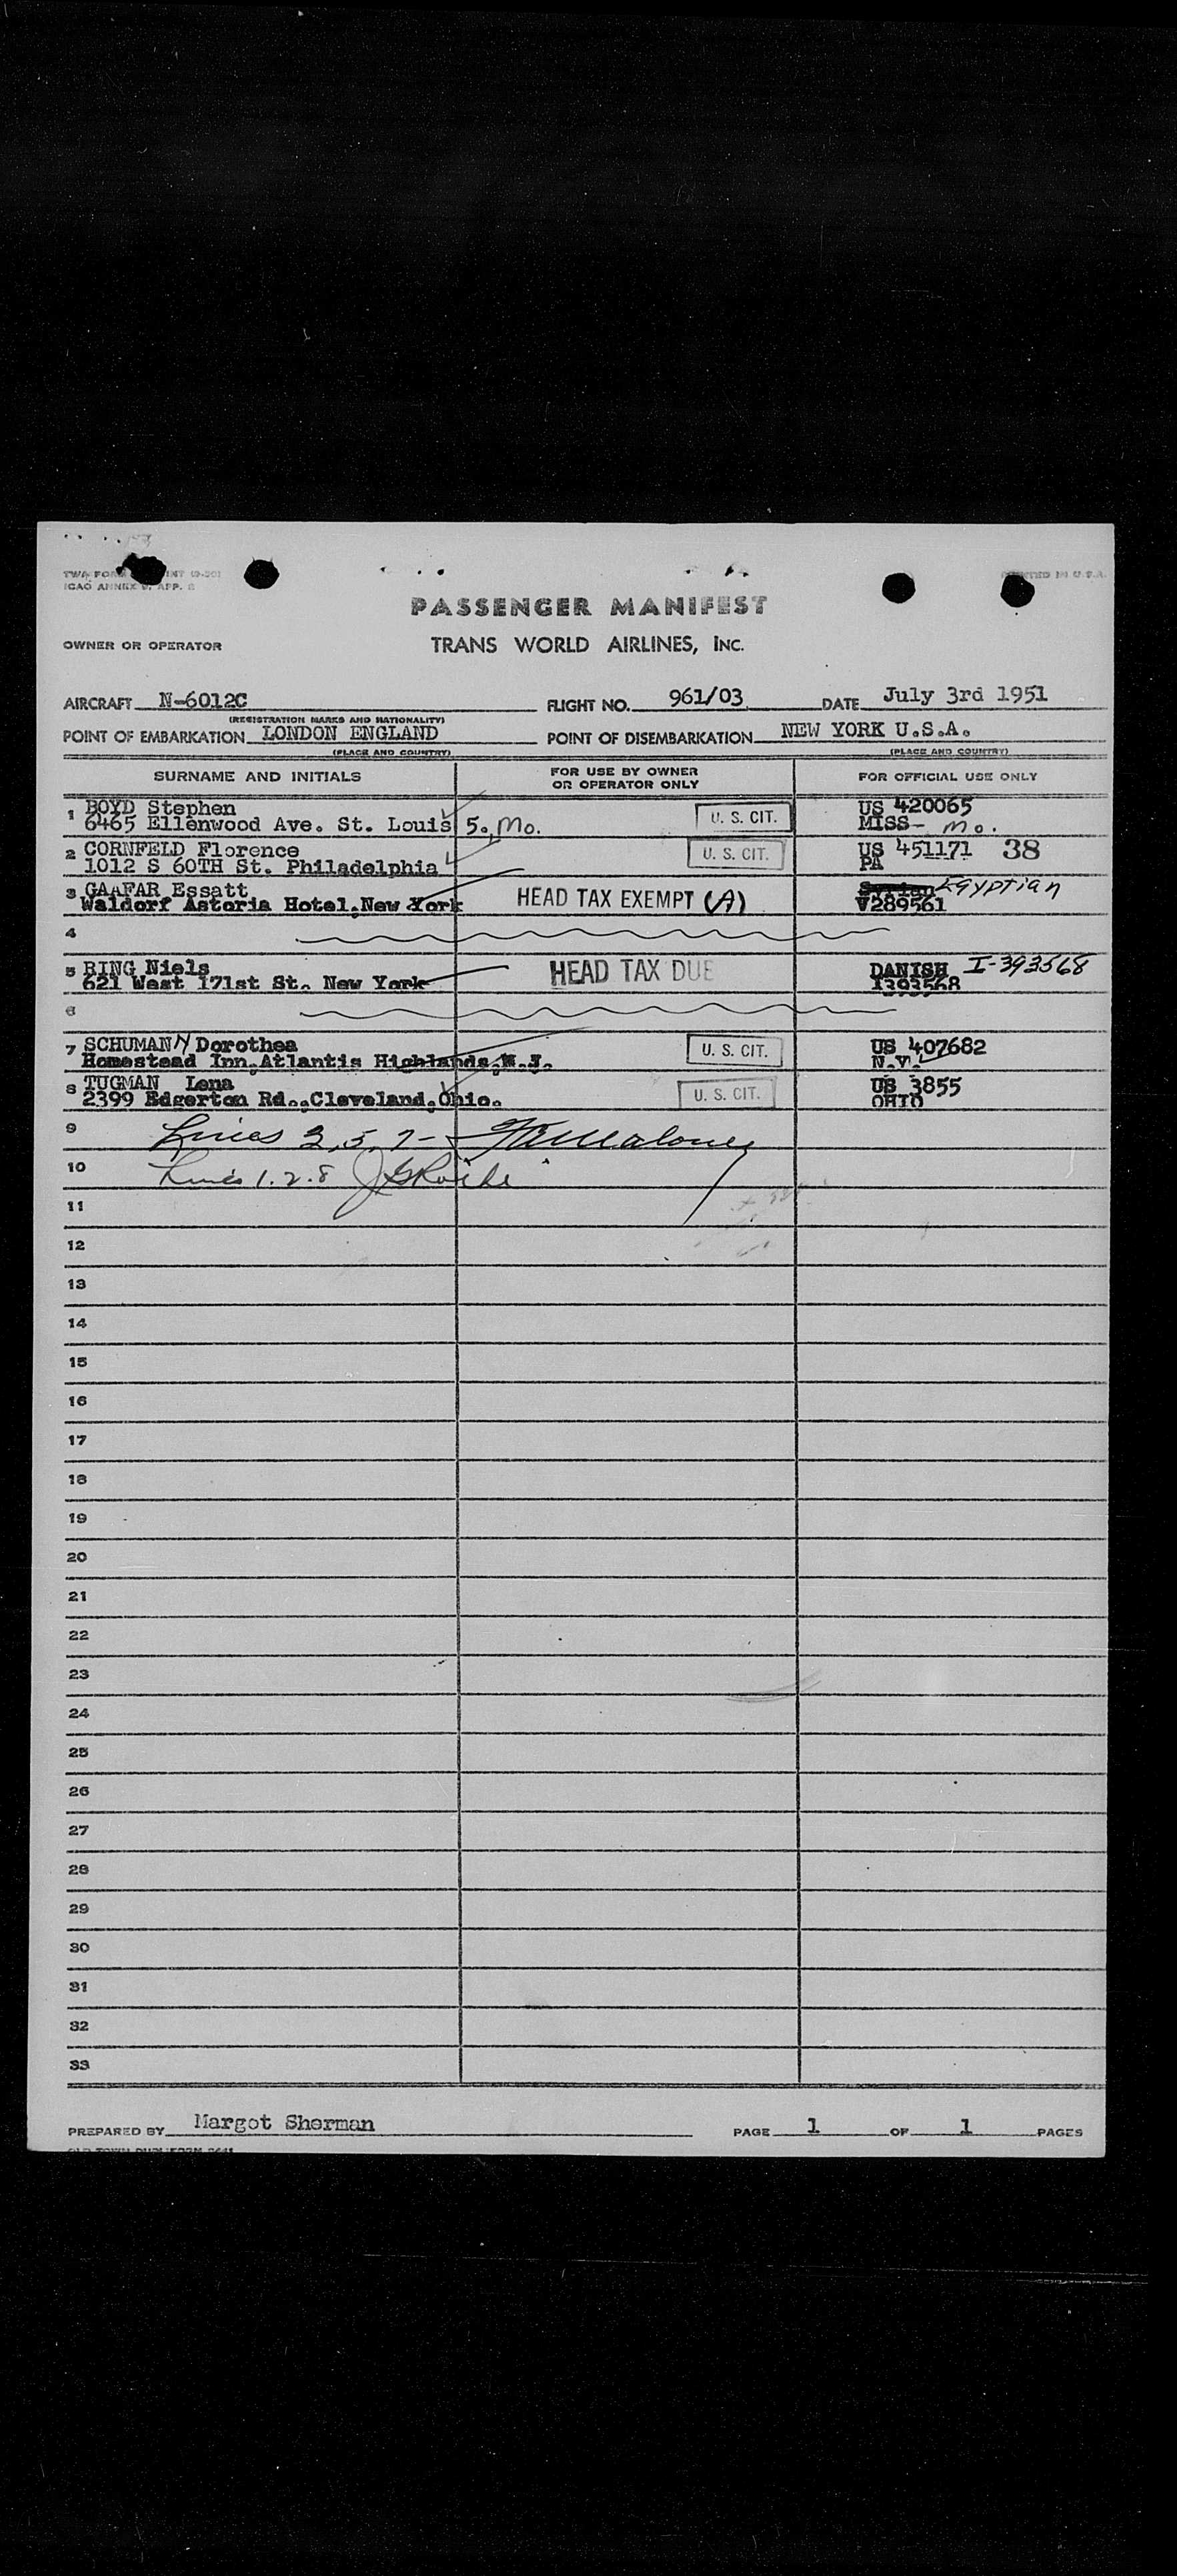 PASSENGER MANIFEST
PRINTED IN U.S.A.
ICAO ANNEX 9, APP. 2
OWNER OR OPERATOR TRANS WORLD AIRLINES, INC.
AIRCRAFT N-6012C FLIGHT NO. 961/03 DATE July 3rd 1951
(REGISTRATION MARKS AND NATIONALITY)
POINT OF EMBARKATION LONDON ENGLAND POINT OF DISEMBARKATION NEW YORK U.S.A.
(PLACE AND COUNTRY) (PLACE AND COUNTRY)
SURNAME AND INITIALS FOR USE BY OWNER OR OPERATOR ONLY FOR OFFICIAL USE ONLY
1 BOYD Stephen U. S. CIT. US 420065
6465 Ellenwood Ave. St. Louis 5. Mo. MISS- Mo.
2 CORNFELD Florence U. S. CIT. US 451171 38
1012 S 60TH St. Philadelphia PA
3 GAAFAR Essatt HEAD TAX EXEMPT (A) Syrian Egyptian
Waldorf Astoria Hotel,New York V289561
4
5 RING Niels HEAD TAX DUE DANISH I-393568
621 West 171st St. New York I393568
6
7 SCHUMANN Dorothea U. S. CIT. US 407682
Homestead Inn,Atlantis Highlands,N.J. N.Y.
8 TUGMAN Lena U. S. CIT. US 3855
2399 Edgerton Rd.,Cleveland,Ohio. OHIO
9 Lines 3, 5, 7-
10 Lines 1. 2. 8
11
12
13
14
15
16
17
18
19
20
21
22
23
24
25
26
27
28
29
30
31
32
33
PREPARED BY Margot Sherman PAGE 1 OF 1 PAGES